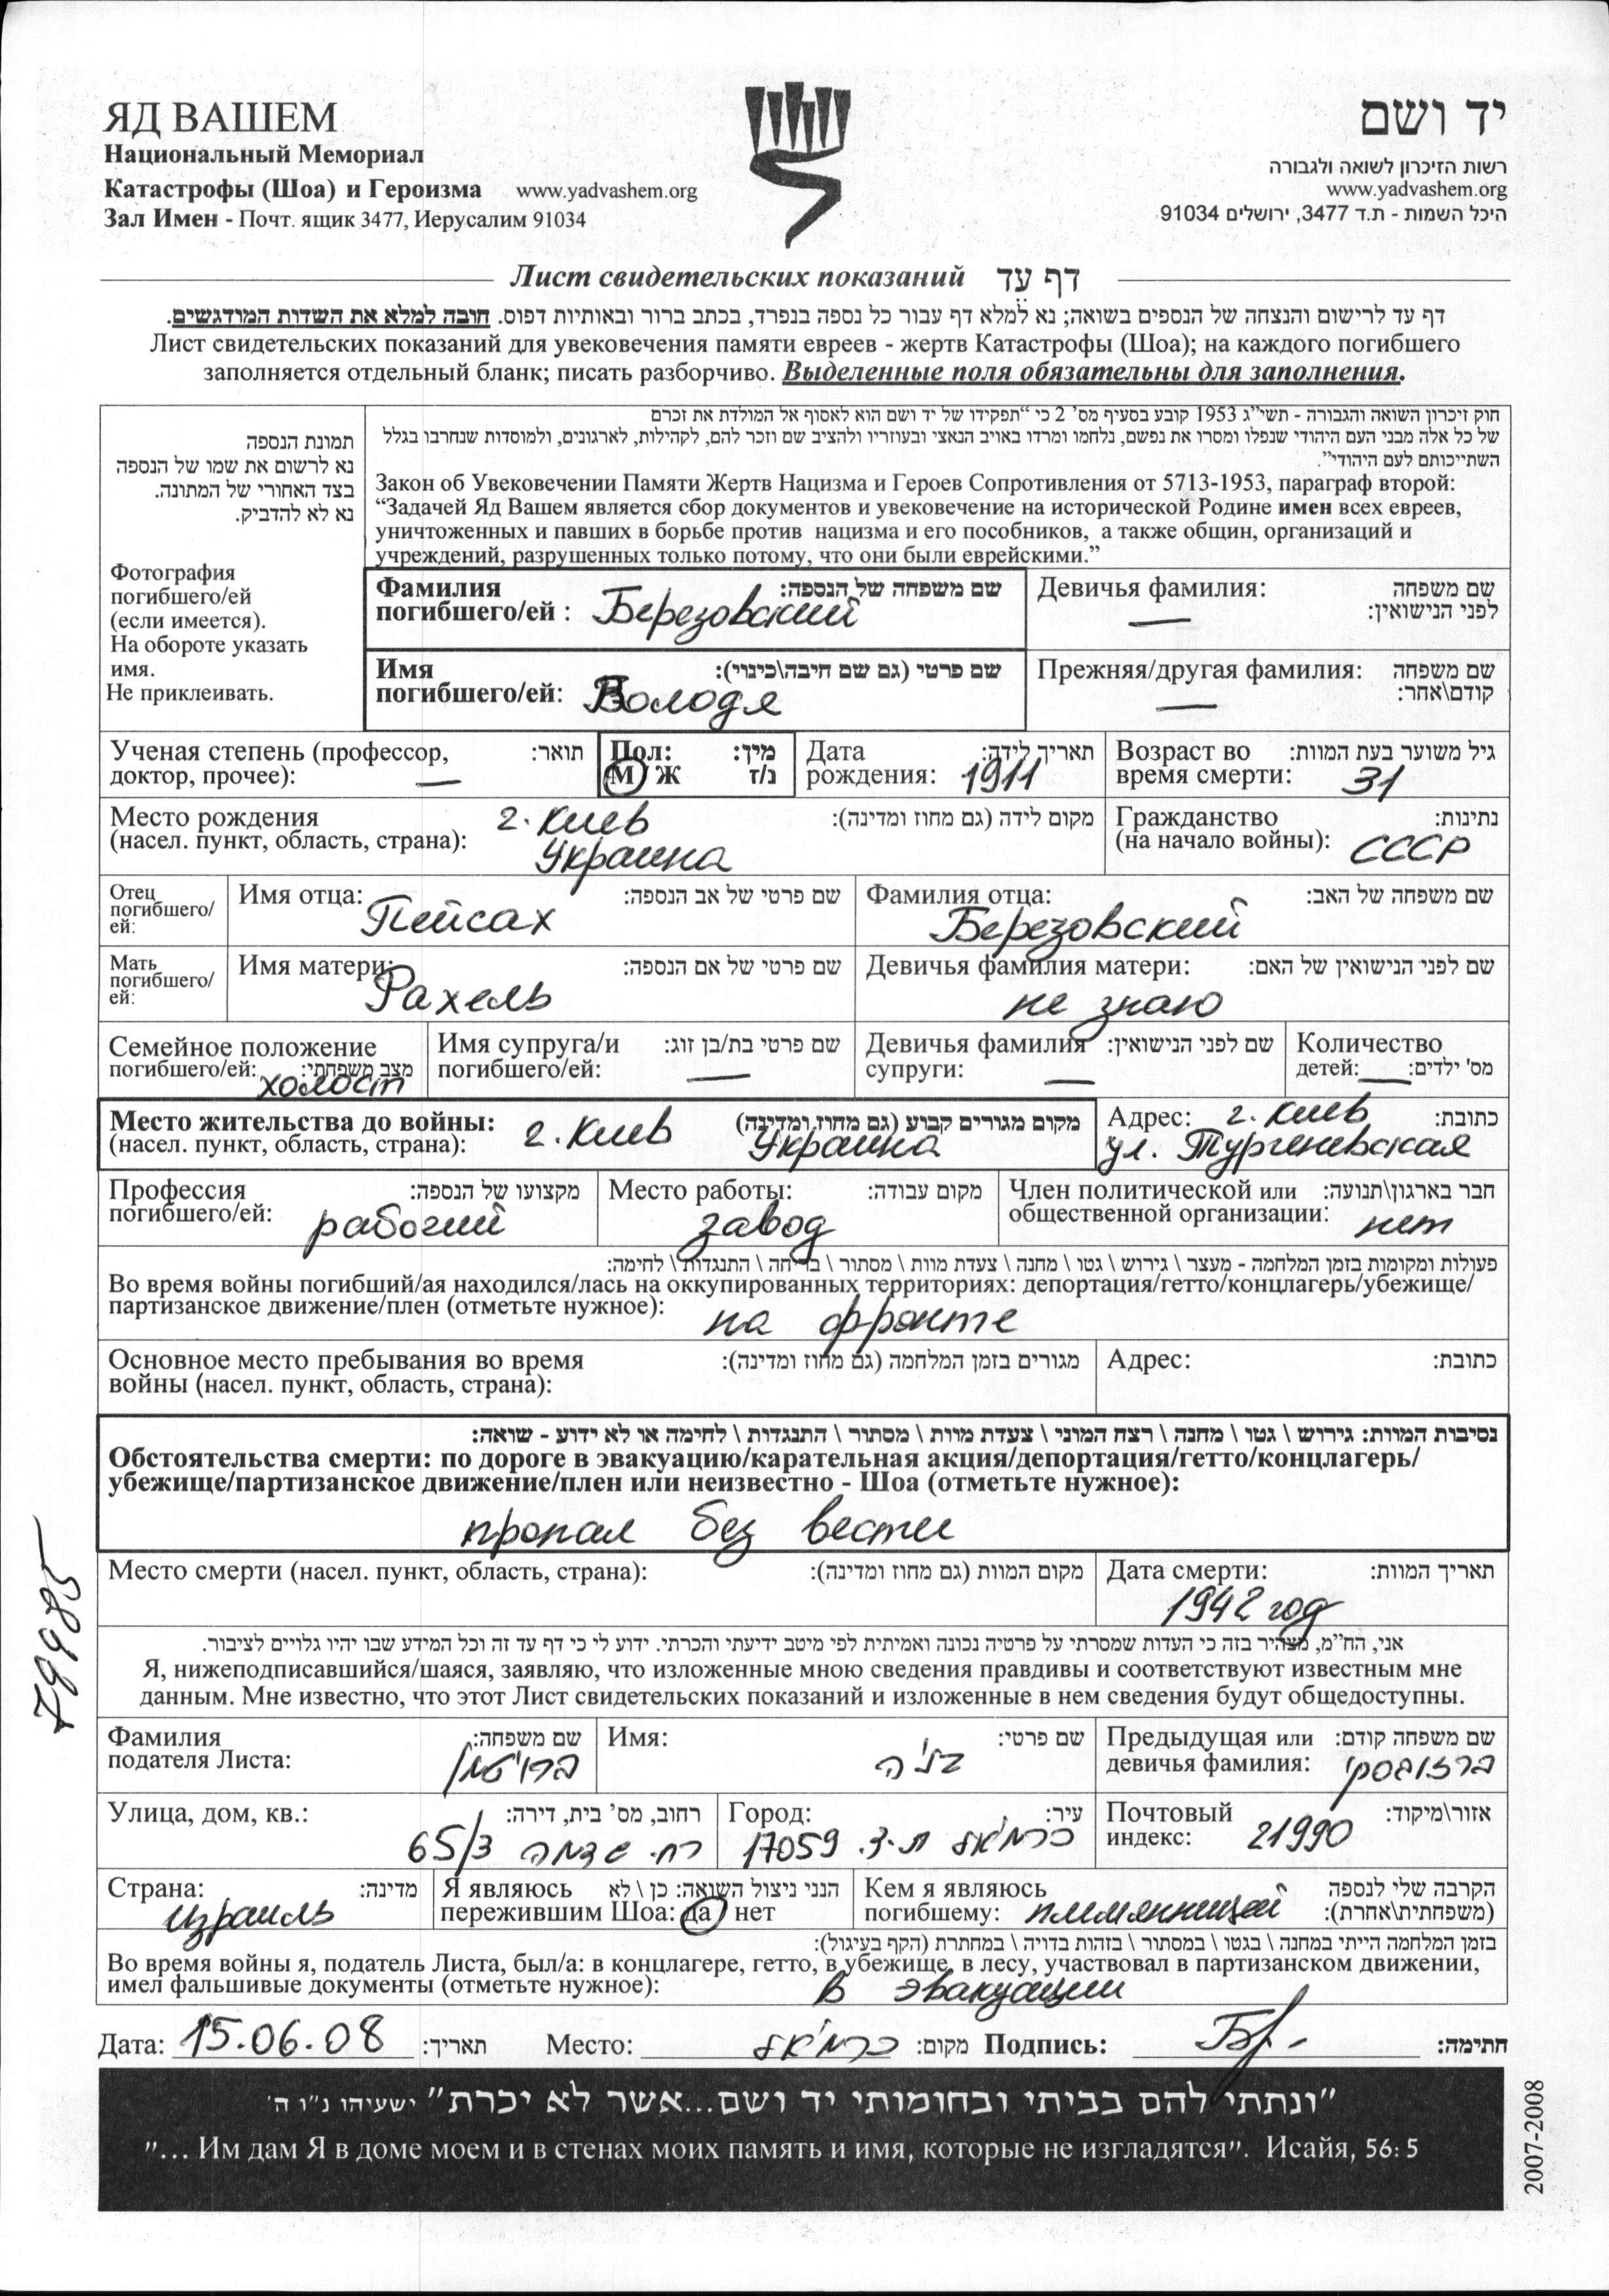 ЯД ВАШЕМ
Национальный Мемориал
Катастрофы (Шоа) и Героизма www.yadvashem.org
Зал Имен - Почт. ящик 3477, Иерусалим 91034
יד ושם
רשות הזיכרון לשואה ולגבורה
www.yadvashem.org
היכל השמות - ת.ד 3477, ירושלים 91034
Лист свидетельских показаний דף עד
דף עד לרישום והנצחה של הנספים בשואה; נא למלא דף עבור כל נספה בנפרד, בכתב ברור ובאותיות דפוס. חובה למלא את השדות המודגשים.
Лист свидетельских показаний для увековечения памяти евреев - жертв Катастрофы (Шоа); на каждого погибшего
заполняется отдельный бланк; писать разборчиво. Выделенные поля обязательны для заполнения.
תמונת הנספה
נא לרשום את שמו של הנספה
בצד האחורי של המתונה.
נא לא להדביק.
Фотография
погибшего/ей
(если имеется).
На обороте указать
имя.
Не приклеивать.
חוק זיכרון השואה והגבורה - תשי"ג 1953 קובע בסעיף מס' 2 כי "תפקידו של יד ושם הוא לאסוף אל המולדת את זכרם
של כל אלה מבני העם היהודי שנפלו ומסרו את נפשם, נלחמו ומרדו באויב הנאצי ובעוזריו ולהציב שם וזכר להם, לקהילות, לארגונים, ולמוסדות שנחרבו בגלל
השתייכותם לעם היהודי".
Закон об Увековечении Памяти Жертв Нацизма и Героев Сопротивления от 5713-1953, параграф второй:
“Задачей Яд Вашем является сбор документов и увековечение на исторической Родине имен всех евреев,
уничтоженных и павших в борьбе против нацизма и его пособников, а также общин, организаций и
учреждений, разрушенных только потому, что они были еврейскими.”
Фамилия שם משפחה של הנספה:
погибшего/ей : Березовский
Девичья фамилия: שם משפחה
לפני הנישואין: —
Имя שם פרטי (גם שם חיבה\כינוי):
погибшего/ей: Володя
Прежняя/другая фамилия: שם משפחה
קודם\אחר: —
Ученая степень (профессор, תואר:
доктор, прочее): —
Пол: מין:
М / Ж ז/נ
Дата תאריך לידה:
рождения: 1911
Возраст во גיל משוער בעת המוות:
время смерти: 31
Место рождения г. Киев מקום לידה (גם מחוז ומדינה):
(насел. пункт, область, страна): Украина
Гражданство נתינות:
(на начало войны): СССР
Отец
погибшего/
ей:
Имя отца: שם פרטי של אב הנספה:
Пейсах
Фамилия отца: שם משפחה של האב:
Березовский
Мать
погибшего/
ей:
Имя матери: שם פרטי של אם הנספה:
Рахель
Девичья фамилия матери: שם לפני הנישואין של האם:
не знаю
Семейное положение
погибшего/ей: מצב משפחתי:
холост
Имя супруга/и שם פרטי בת/בן זוג:
погибшего/ей: —
Девичья фамилия שם לפני הנישואין:
супруги: —
Количество
детей: — מס' ילדים:
Место жительства до войны: מקום מגורים קבוע (גם מחוז ומדינה)
(насел. пункт, область, страна): г. Киев Украина
Адрес: г. Киев כתובת:
ул. Тургеневская
Профессия מקצועו של הנספה:
погибшего/ей: рабочий
Место работы: מקום עבודה:
завод
Член политической или חבר בארגון\תנועה:
общественной организации: нет
פעולות ומקומות בזמן המלחמה - מעצר \ גירוש \ גטו \ מחנה \ צעדת מוות \ מסתור \ בריחה \ התנגדות \ לחימה:
Во время войны погибший/ая находился/лась на оккупированных территориях: депортация/гетто/концлагерь/убежище/
партизанское движение/плен (отметьте нужное): на фронте
Основное место пребывания во время מגורים בזמן המלחמה (גם מחוז ומדינה):
войны (насел. пункт, область, страна):
Адрес: כתובת:
נסיבות המוות: גירוש \ גטו \ מחנה \ רצח המוני \ צעדת מוות \ מסתור \ התנגדות \ לחימה או לא ידוע - שואה:
Обстоятельства смерти: по дороге в эвакуацию/карательная акция/депортация/гетто/концлагерь/
убежище/партизанское движение/плен или неизвестно - Шоа (отметьте нужное):
пропал без вести
Место смерти (насел. пункт, область, страна): מקום המוות (גם מחוז ומדינה):
Дата смерти: תאריך המוות:
1942 год
אני, הח"מ, מצהיר בזה כי העדות שמסרתי על פרטיה נכונה ואמיתית לפי מיטב ידיעתי והכרתי. ידוע לי כי דף עד זה וכל המידע שבו יהיו גלויים לציבור.
Я, нижеподписавшийся/шаяся, заявляю, что изложенные мною сведения правдивы и соответствуют известным мне
данным. Мне известно, что этот Лист свидетельских показаний и изложенные в нем сведения будут общедоступны.
Фамилия שם משפחה:
подателя Листа: ברויטמן
Имя: שם פרטי:
Предыдущая или שם משפחה קודם:
девичья фамилия: ברזובסקי
Улица, дом, кв.: רחוב, מס' בית, דירה:
רח. 65/3
Город: עיר:
כרמיאל ת.ד. 17059
Почтовый אזור\מיקוד:
индекс: 21990
Страна: מדינה:
Израиль
Я являюсь הנני ניצול השואה: כן \ לא
пережившим Шоа: да / нет
Кем я являюсь הקרבה שלי לנספה
погибшему: племянницей (משפחתית\אחרת):
בזמן המלחמה הייתי במחנה \ בגטו \ במסתור \ בזהות בדויה \ במחתרת (הקף בעיגול):
Во время войны я, податель Листа, был/а: в концлагере, гетто, в убежище, в лесу, участвовал в партизанском движении,
имел фальшивые документы (отметьте нужное): в эвакуации
Дата: 15.06.08 תאריך: Место: כרמיאל מקום: Подпись: חתימה:
"ונתתי להם בביתי ובחומותי יד ושם...אשר לא יכרת" ישעיהו נ"ו ה'
"... Им дам Я в доме моем и в стенах моих память и имя, которые не изгладятся". Исайя, 56: 5
2007-2008